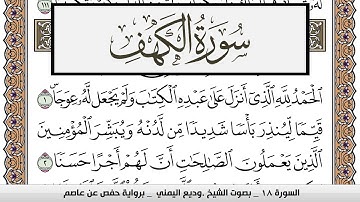 سُورَةُ الْكَهْفِ
الْحَمْدُ لِلَّهِ الَّذِي أَنزَلَ عَلَىٰ عَبْدِهِ الْكِتَابَ وَلَمْ يَجْعَل لَّهُ عِوَجًا ۜ ١
قَيِّمًا لِّيُنذِرَ بَأْسًا شَدِيدًا مِّن لَّدُنْهُ وَيُبَشِّرَ الْمُؤْمِنِينَ
الَّذِينَ يَعْمَلُونَ الصَّالِحَاتِ أَنَّ لَهُمْ أَجْرًا حَسَنًا ٢
السورة ١٨ _ بصوت الشيخ .وديع اليمني _ برواية حفص عن عاصم